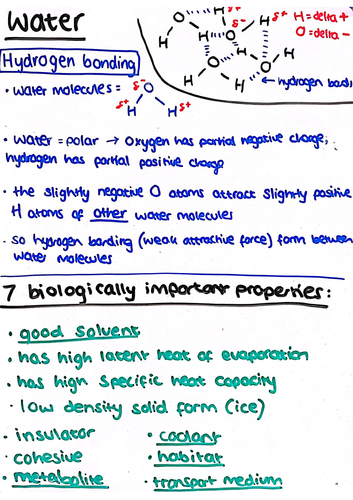 Water
Hydrogen bonding
• water molecules =
δ-
O
δ+ H H δ+
O H δ+
δ-
H H O H δ+
O H O
H H H
H = delta +
O = delta -
← hydrogen
• water = polar → Oxygen has partial negative charge;
hydrogen has partial positive charge
• the slightly negative O atoms attract slightly positive
H atoms of other water molecules
• so hydrogen bonding (weak attractive force) form between
water molecules
7 biologically important properties:
• good solvent
• has high latent heat of evaporation
• has high specific heat capacity
• low density solid form (ice)
• insulator
• cohesive
• metabolite
• coolant
• habitat
• transport medium